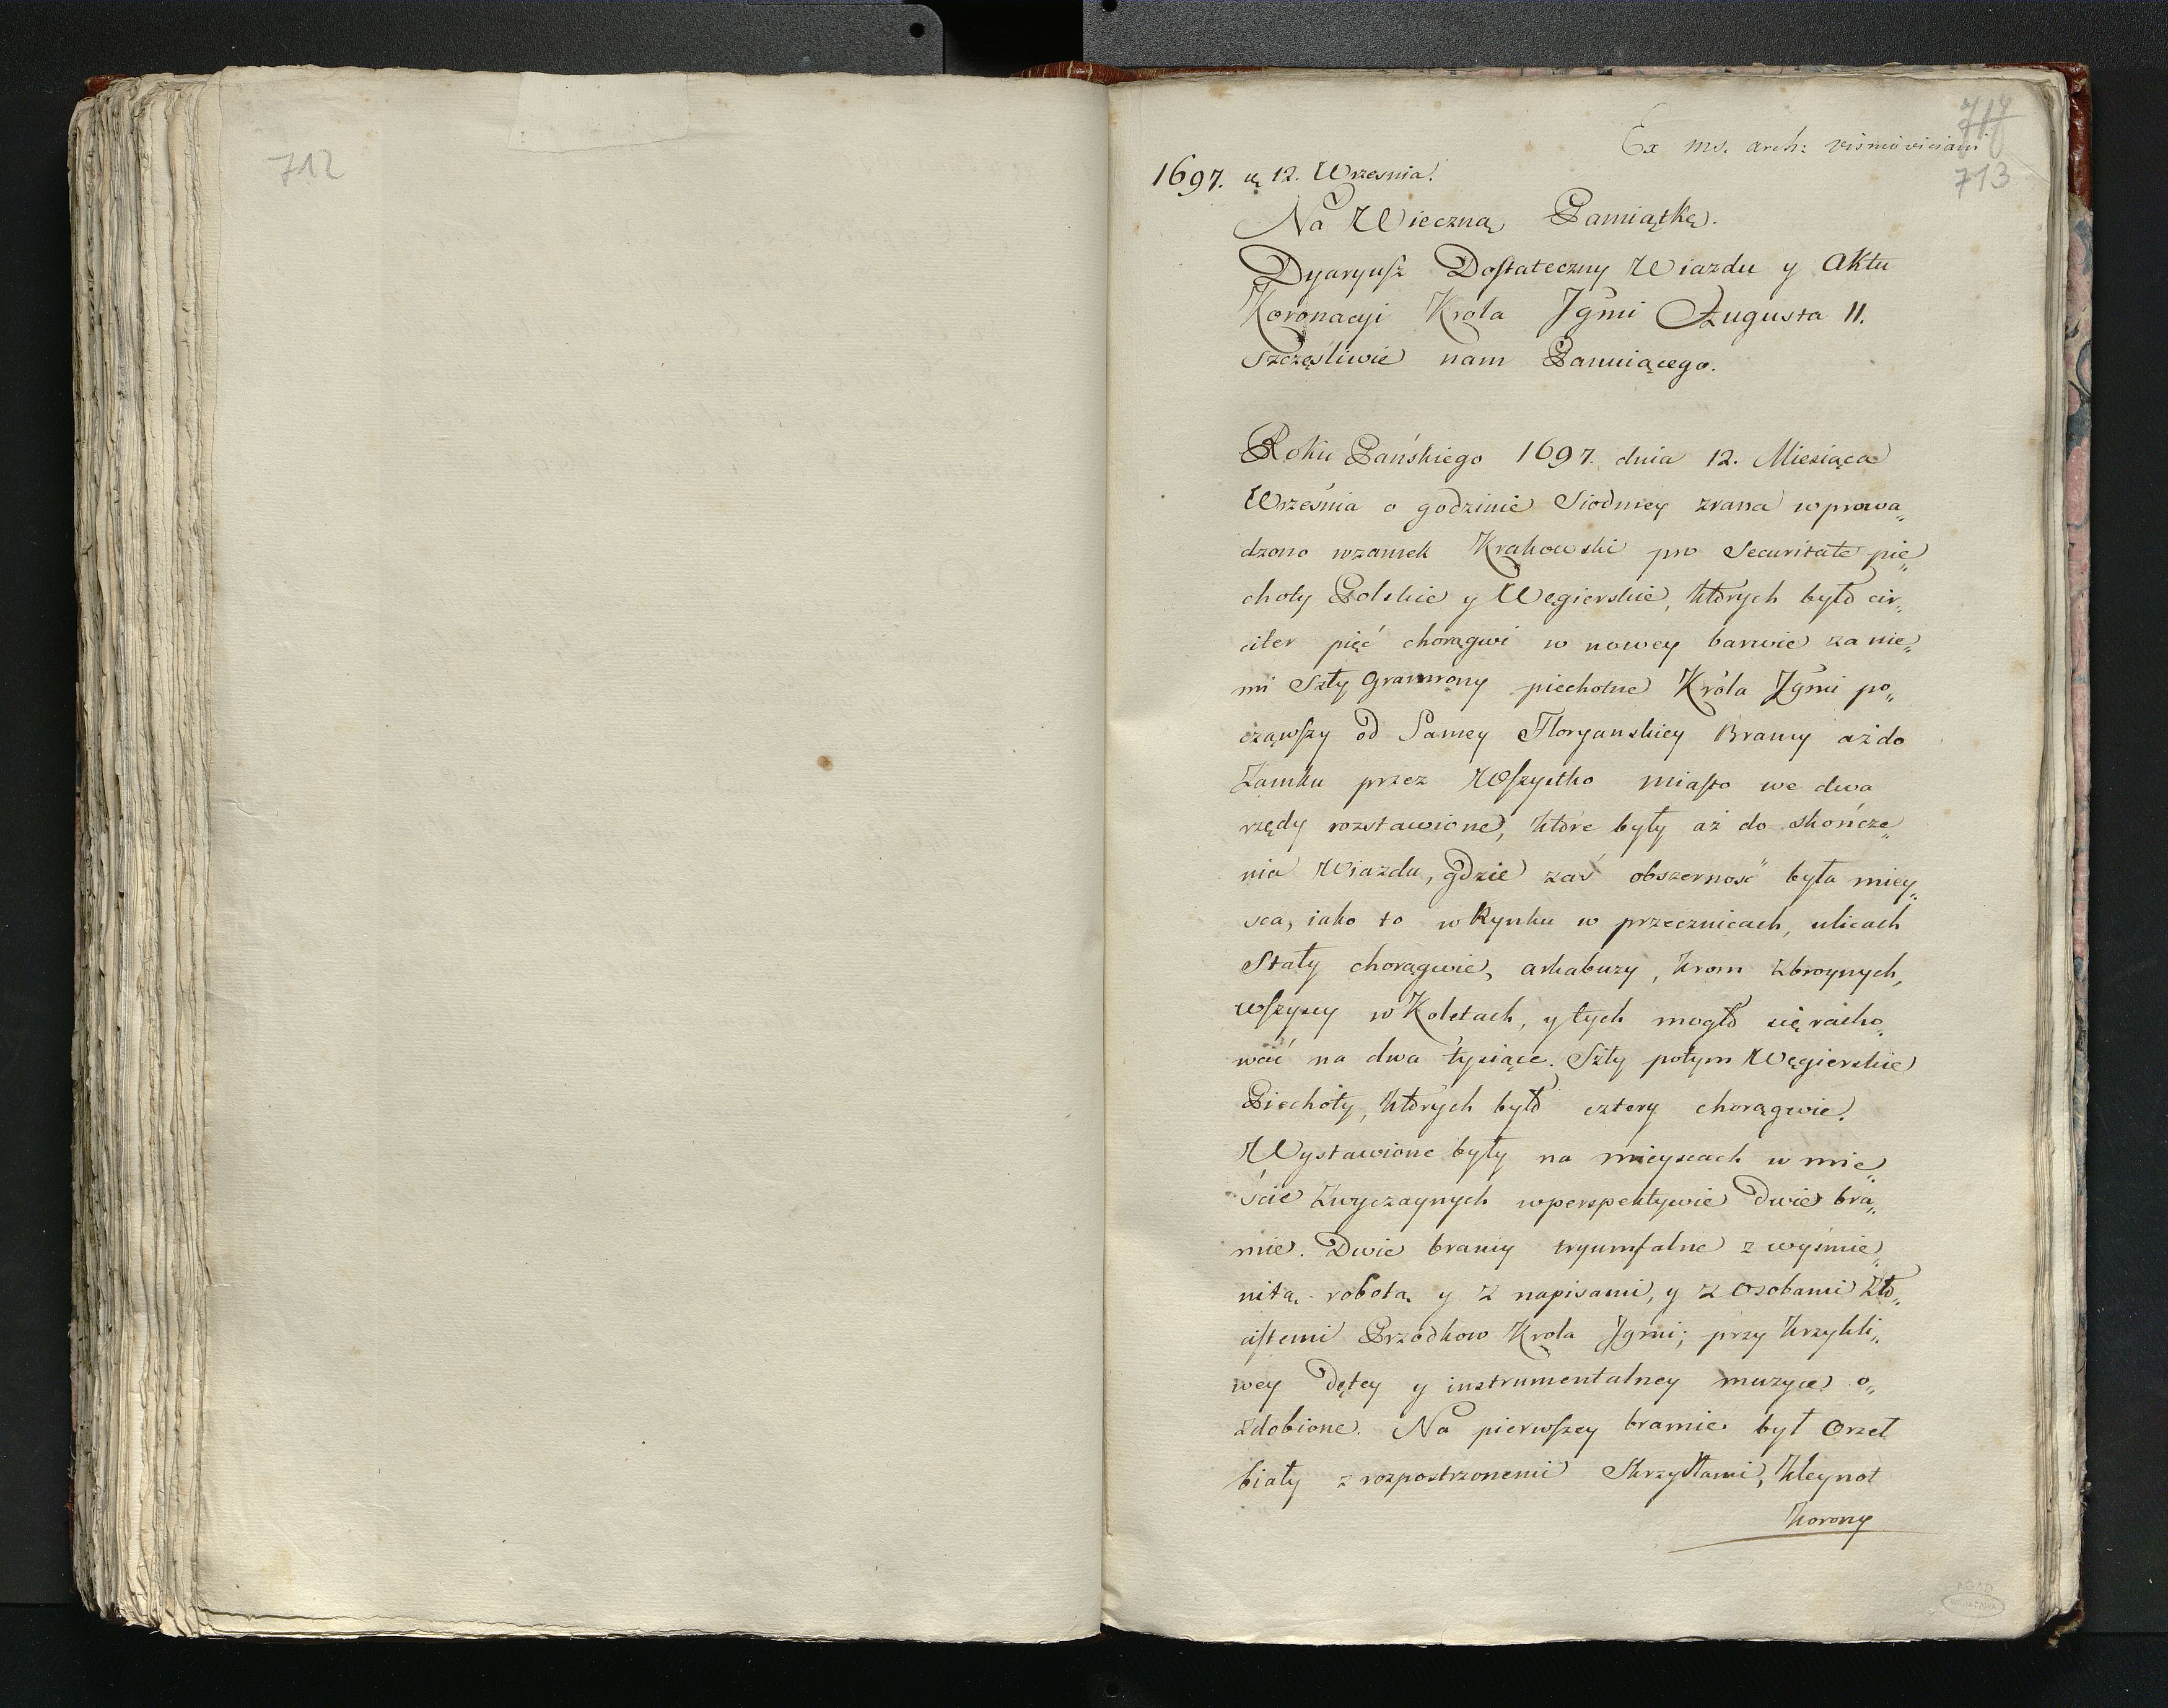 712
717
713
Ex ms. arch: visnioviciani
1697. ą 12. Wrzesnia.
Na Wieczną Pamiątkę.
Dyaryusz Dostateczny Wiazdu y Aktu
Koronacyi Krola Jgmi Augusta II.
Szczęsliwie nam Panuiącego.
Roku Pańskiego 1697. dnia 12. Miesiąca
Wrzesnia o godzinie Siodmey zrana wprowa„
dzono wzamek Krakowski pro Securitate pie„
choty Polskie y Węgierskie, których było cir„
citer pięć chorągwi w nowey barwie za nie„
mi Szły Gramrony piechotne Króla Jgmi po„
cząwszy od Samey Floryanskiey Bramy aż do
Zamku przez Wszystko miasto we dwa
rzędy rozstawione, które były aż do skończe„
nia Wiazdu, gdzie zaś obszerność była miey„
sca, iako to w Rynku w przecznicach, ulicach
Stały chorągwie, arkabuzy, krom zbroynych,
wszyscy w Koletach, y tych mogło się racho„
wać na dwa tysiące. Szły potym Węgierskie
Piechoty, których było cztery chorągwie.
Wystawione były na mieyscach w mie„
ście Zwyczaynych wperspektywie dwie bra„
mie. Dwie bramy tryumfalne z wyśmie„
nitą robotą y z napisami, y z Osobami Zło„
cistemi Przodkow Krola Jgmi; przy krzykli„
wey Dętey y instrumentalney muzyce o„
zdobione. Na pierwszey bramie był Orzeł
biały z rozpostrzonemi Skrzydłami, Kleynot
Korony
AGAD
WARSZAWA